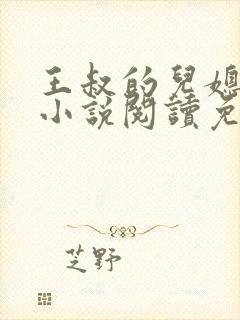 王叔的兒媳
小說閱讀免
芝野